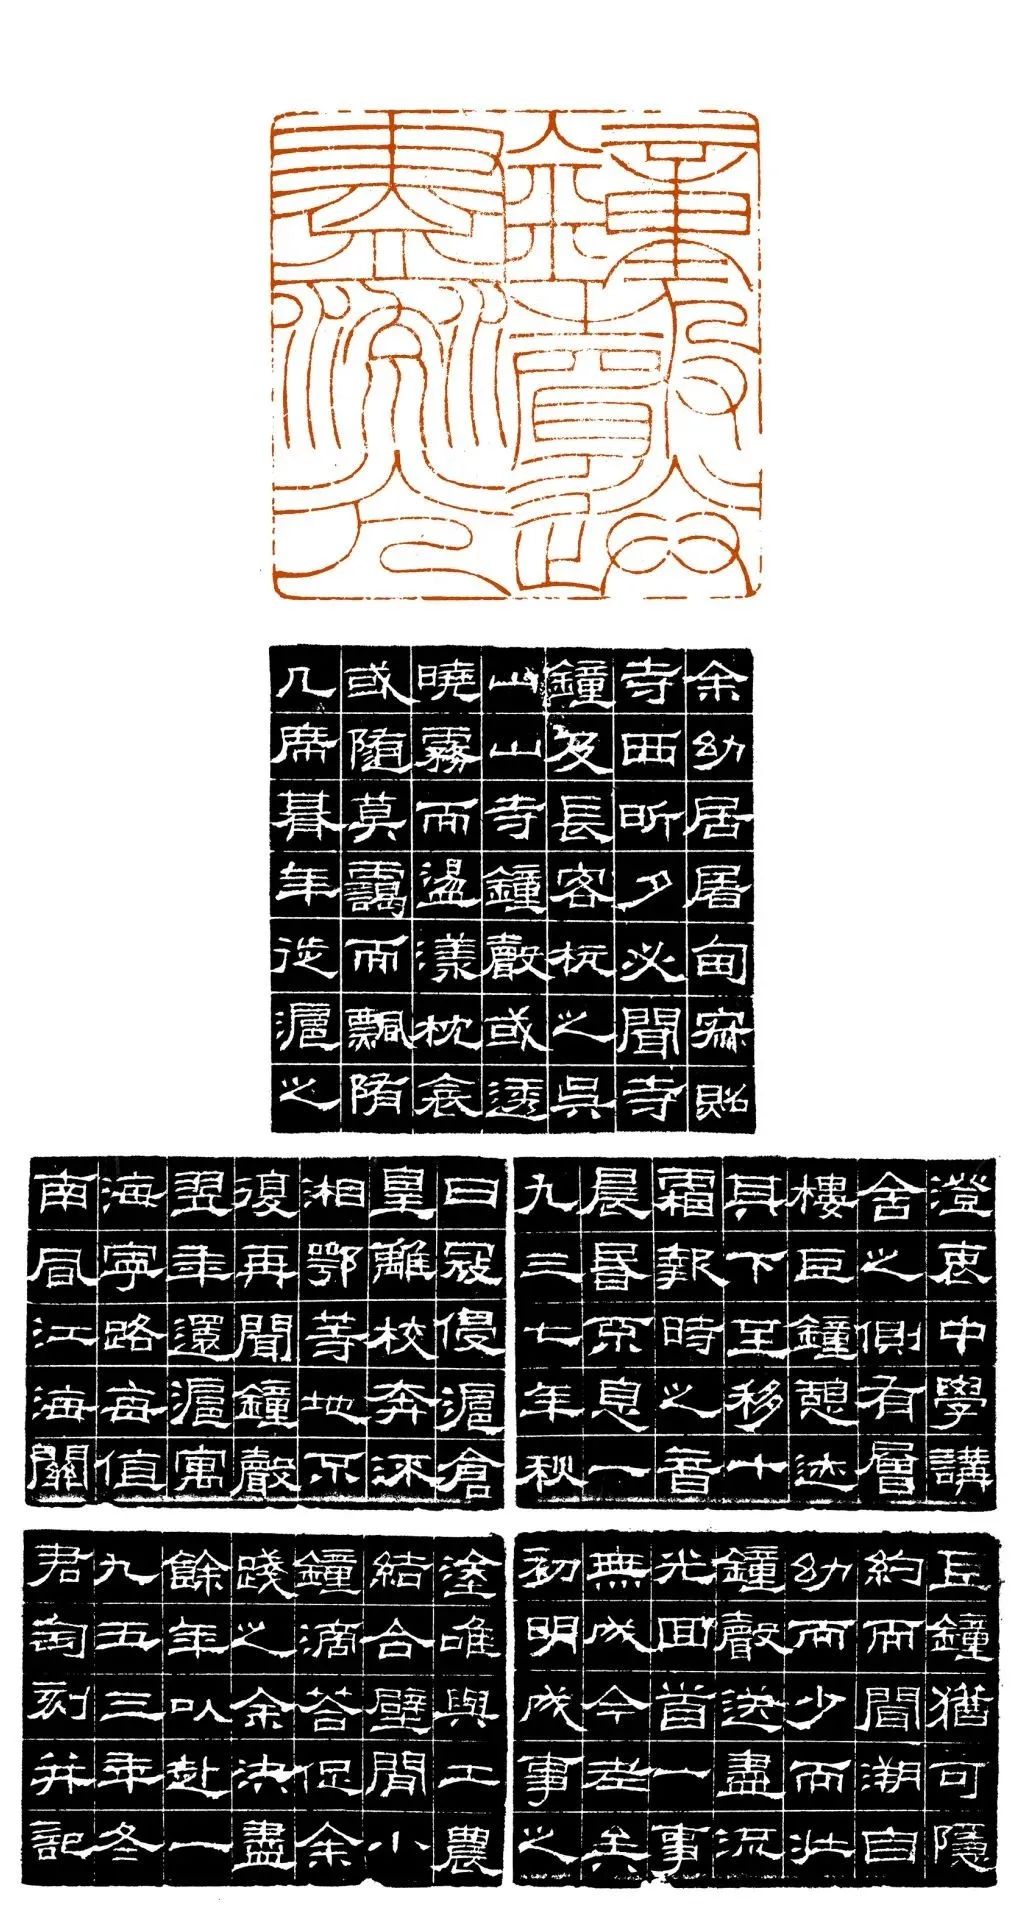 鐘聲送盡流光
余幼居屠甸寂照
寺西昕夕必聞寺
鐘及長客杭之吳
山山寺鐘聲或透
曉霧而盪漾枕衾
或随莫靄而飄隋
几席朞年徙滬之
澄衷中學講
舍之側有層
樓巨鐘憩迹
其下至移十
霜報時之音
晨昬息一
九三七年秋
日寇侵滬倉
皇離校奔
湘鄂等地不
復再聞鐘聲
翌年還滬寓
海寧路每值
南風江海關
巨鐘猶可隱
約而聞溯自
幼而少而壯
鐘聲送盡流
光回首一事
無成今老矣
初明成事之
塗唯與工農
結合壁間小
鐘滴答促余
踐之余決盡
餘年以赴一
九五三年冬
君匋刻并記